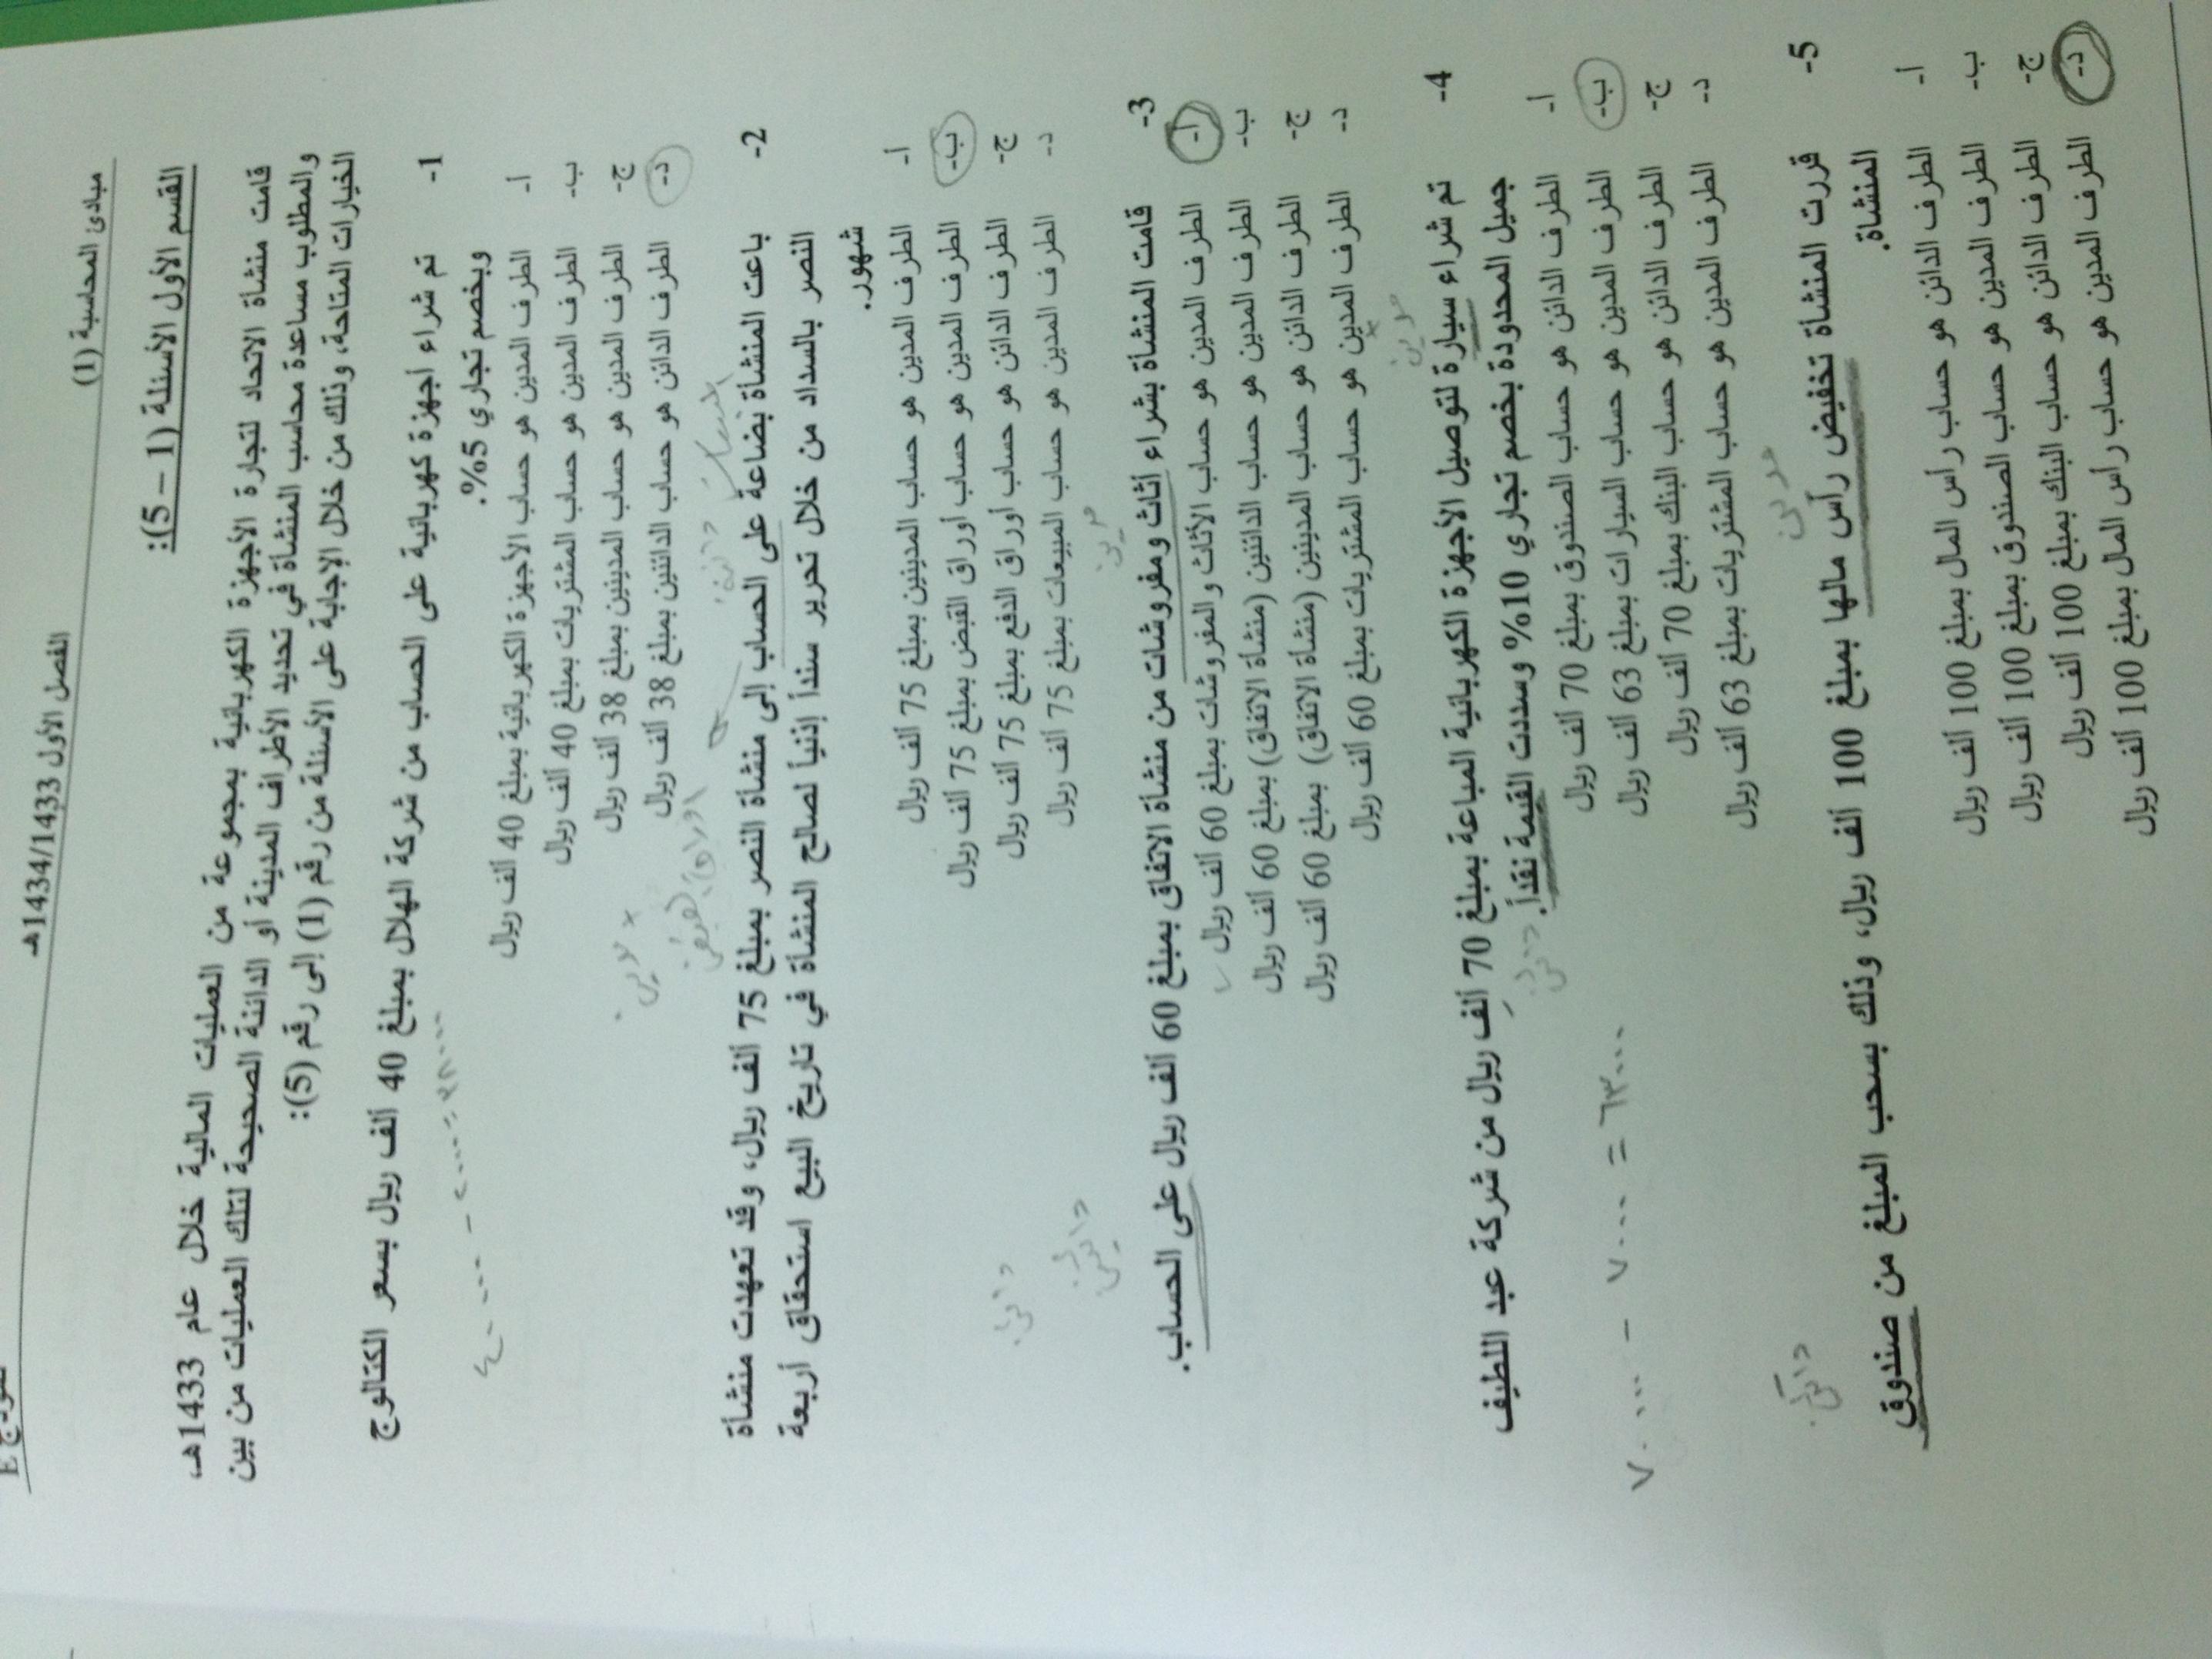 نموذج E
الفصل الأول 1434/1433هـ
مبادئ المحاسبة (1)
القسم الأول الأسئلة (1 – 5):
قامت منشاة الاتحاد لتجارة الأجهزة الكهربائية بمجموعة من العمليات المالية خلال عام 1433هـ،
والمطلوب مساعدة محاسب المنشاة في تحديد الأطراف المدينة أو الدائنة الصحيحة لتلك العمليات من بين
الخيارات المتاحة، وذلك من خلال الإجابة على الأسئلة من رقم (1) إلى رقم (5):
1- تم شراء أجهزة كهربائية على الحساب من شركة الهلال بمبلغ 40 ألف ريال بسعر الكتالوج
وبخصم تجاري 5%.
٤٠٠٠٠ - ٢٠٠٠ = ٣٨٠٠٠
أ- الطرف المدين هو حساب الأجهزة الكهربائية بمبلغ 40 ألف ريال
ب- الطرف المدين هو حساب المشتريات بمبلغ 40 ألف ريال
ج- الطرف المدين هو حساب المدينين بمبلغ 38 ألف ريال
د- الطرف الدائن هو حساب الدائنين بمبلغ 38 ألف ريال
مدين
اوراق القبض
دائنة
2- باعت المنشاة بضاعة على الحساب إلى منشاة النصر بمبلغ 75 ألف ريال، وقد تعهدت منشاة
النصر بالسداد من خلال تحرير سنداً إذنياً لصالح المنشاة في تاريخ البيع استحقاق أربعة
شهور.
أ- الطرف المدين هو حساب المدينين بمبلغ 75 ألف ريال
ب- الطرف المدين هو حساب أوراق القبض بمبلغ 75 ألف ريال
ج- الطرف الدائن هو حساب أوراق الدفع بمبلغ 75 ألف ريال
د- الطرف المدين هو حساب المبيعات بمبلغ 75 ألف ريال
دائن
مدين
دائنين
3- قامت المنشأة بشراء أثاث ومفروشات من منشاة الاتفاق بمبلغ 60 ألف ريال على الحساب.
أ- الطرف المدين هو حساب الأثاث والمفروشات بمبلغ 60 ألف ريال
ب- الطرف المدين هو حساب الدائنين (منشاة الاتفاق) بمبلغ 60 ألف ريال
ج- الطرف الدائن هو حساب المدينين (منشاة الاتفاق) بمبلغ 60 ألف ريال
د- الطرف المدين هو حساب المشتريات بمبلغ 60 ألف ريال
مدين
4- تم شراء سيارة لتوصيل الأجهزة الكهربائية المباعة بمبلغ 70 ألف ريال من شركة عبد اللطيف
جميل المحدودة بخصم تجاري 10% وسددت القيمة نقداً.
دائن
أ- الطرف الدائن هو حساب الصندوق بمبلغ 70 ألف ريال
ب- الطرف المدين هو حساب السيارات بمبلغ 63 ألف ريال
٧٠٠٠٠ - ٧٠٠٠ = ٦٣٠٠٠
ج- الطرف الدائن هو حساب البنك بمبلغ 70 ألف ريال
د- الطرف المدين هو حساب المشتريات بمبلغ 63 ألف ريال
مدين
دائن
5- قررت المنشاة تخفيض رأس مالها بمبلغ 100 ألف ريال، وذلك بسحب المبلغ من صندوق
المنشاة.
أ- الطرف الدائن هو حساب رأس المال بمبلغ 100 ألف ريال
ب- الطرف المدين هو حساب الصندوق بمبلغ 100 ألف ريال
ج- الطرف الدائن هو حساب البنك بمبلغ 100 ألف ريال
د- الطرف المدين هو حساب رأس المال بمبلغ 100 ألف ريال